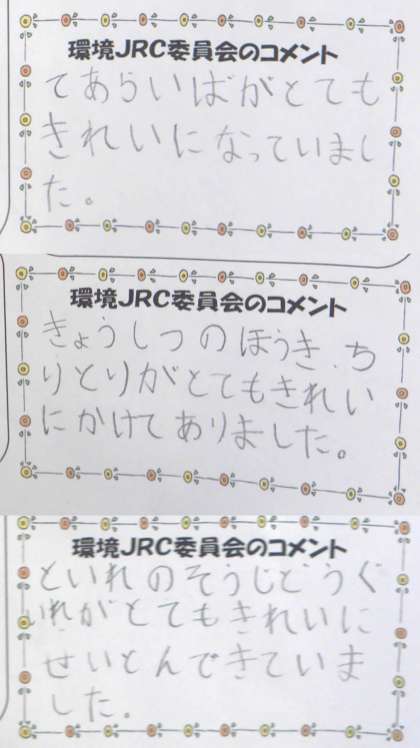 環境JRC委員会のコメント
てあらいばがとても
きれいになっていまし
た。
環境JRC委員会のコメント
きょうしつのほうき、ち
りとりがとてもきれい
にかけてありました。
環境JRC委員会のコメント
といれのそうじどうぐ
いれがとてもきれいに
せいとんできていま
した。